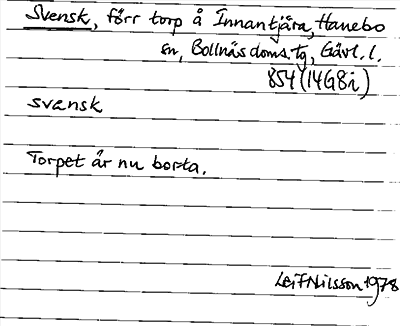 Svensk, förr torp å Innantjära, Hanebo
sn, Bollnäs doms. tg, Gävl. l.
854 (14G8i)
svensk
Torpet är nu borta.
Leif Nilsson 1978